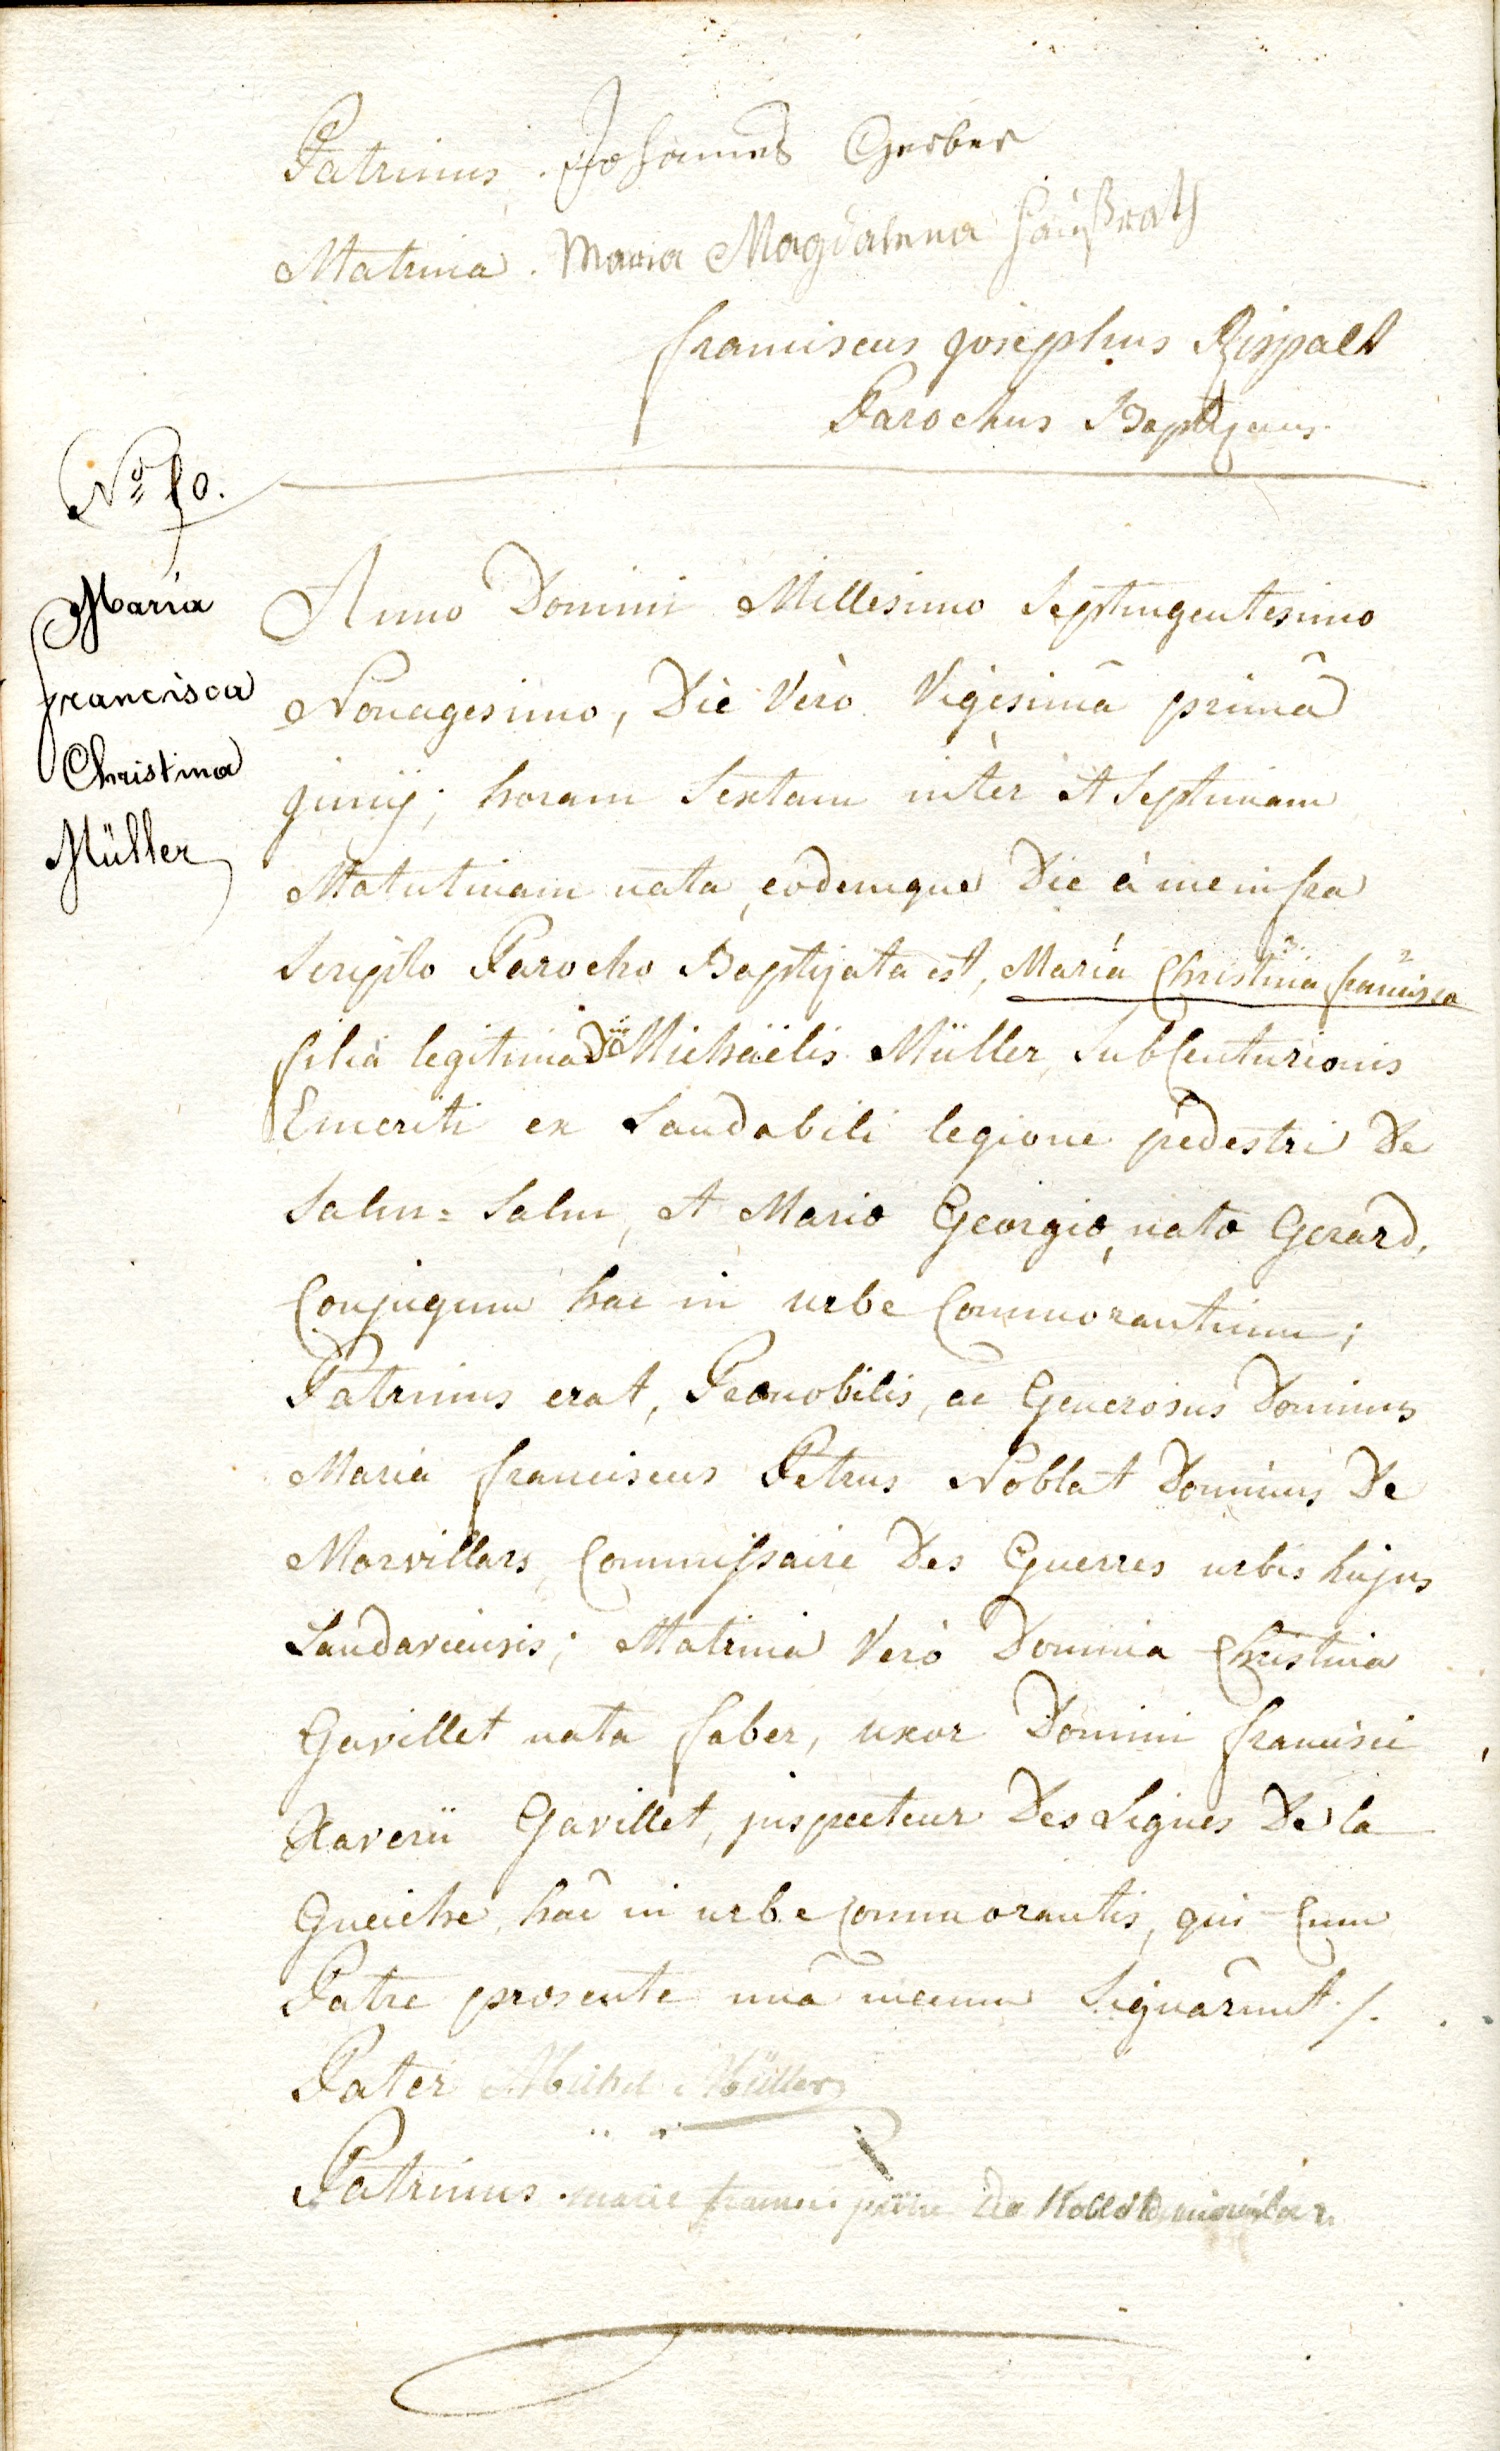 Patrinus. Johannes Gerber
Matrina. Maria Magdalena haußrath
franciscus josephus Rispalt
Parochus Baptizans.
No 50.
Maria
francisca
Christina
Müller
Anno Domini Millesimo Septingentesimo
Nonagesimo, Die Verò Vigesimâ primâ
junij; horam Sextam intèr et Septimam
Matutinam nata, eodemque Die à me infra
Scripto Parocho Baptizata est, Maria 1 Christina 3 francisca 2
filia legitima Dni Michaëlis Müller, SubCenturionis
Emeriti ex Laudabili legione pedestri De
Salm=Salm, et Mariæ Georgiæ, natæ Gerard,
Conjugum hac in urbe Commorantium;
Patrinus erat, Prænobilis, ac Generosus Dominus
Maria franciscus Petrus Noblat Dominus De
Morvillars, Commissaire Des Guerres urbis hujus
Landaviensis; Matrina Verò Domina Christina
Gavillet nata faber, uxor Domini francisci
Xaverii Gavillet, juspecteur Des Lignes De la
Queiche, hac in urbe Commorantis, qui Cum
Patre præsente unà mecum Signârunt /.
Pater Michel Müller
Patrinus. marie francois pierre De Noblat de morvillars